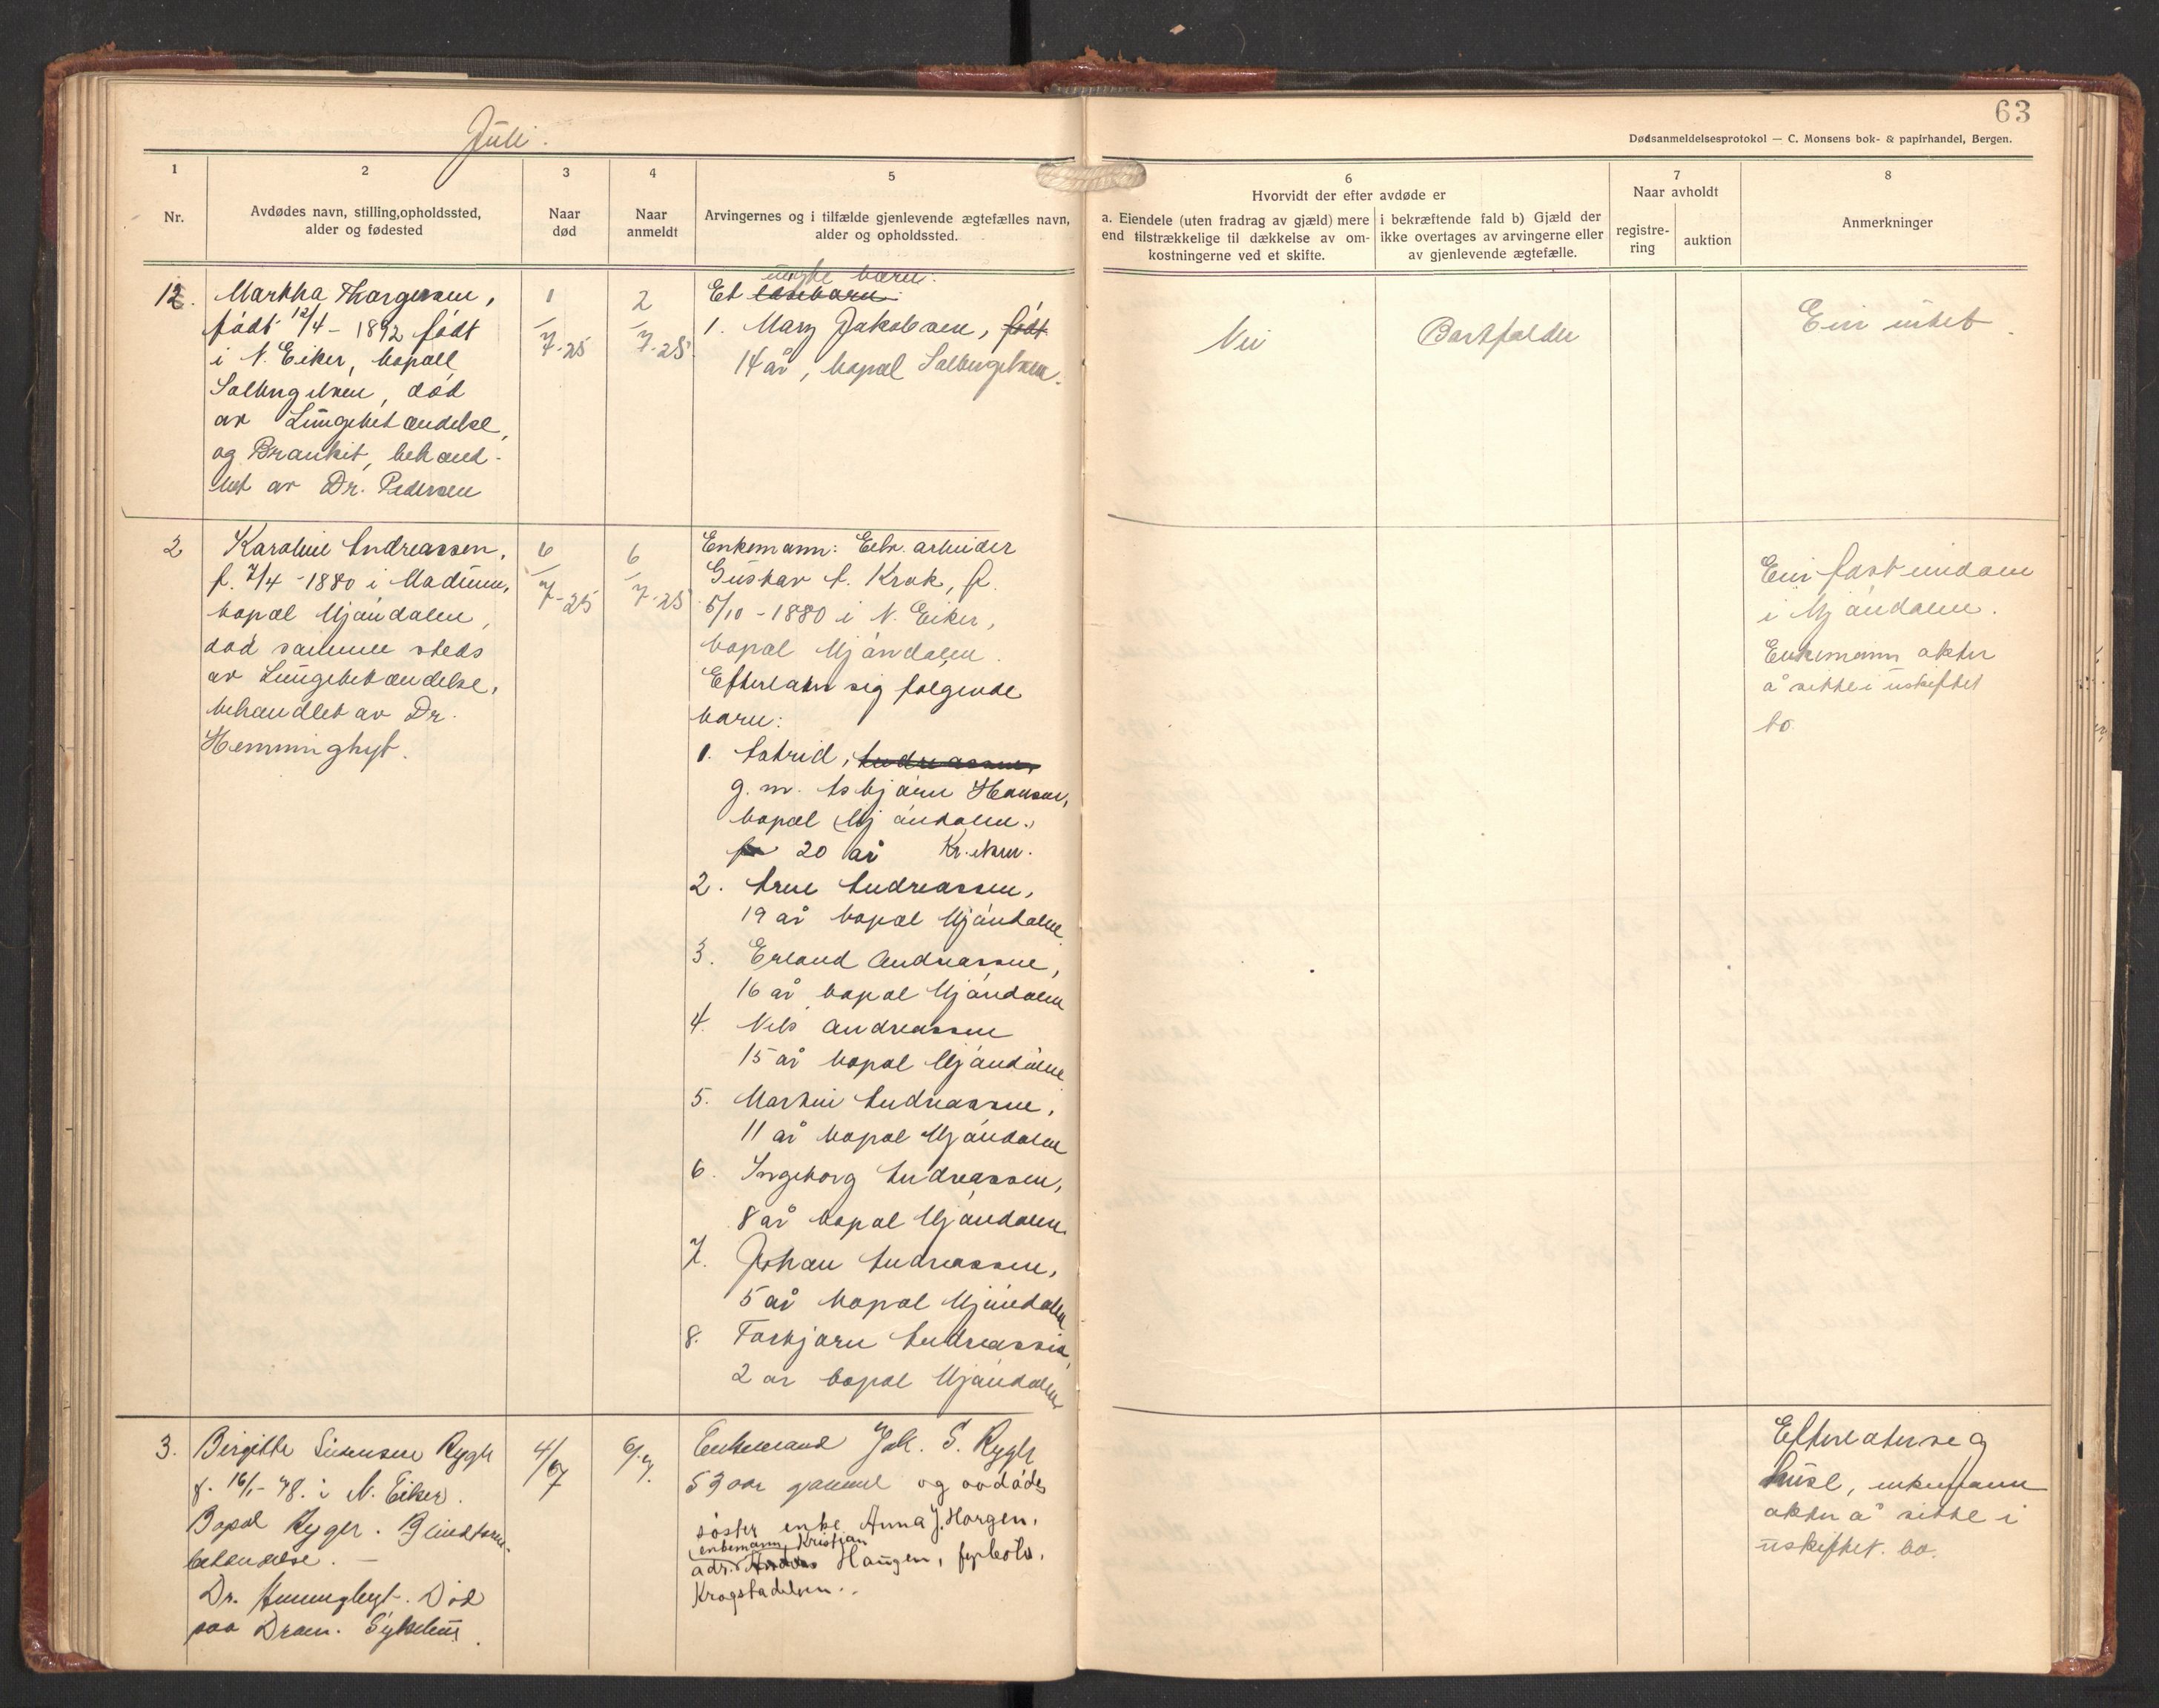 63
Dødsanmeldelsesprotokol — C. Monsens bok- & papirhandel, Bergen.
Juli.
1
Nr.
2
Avdødes navn, stilling, opholdssted,
alder og fødested
3
Naar
død
4
Naar
anmeldt
5
Arvingernes og i tilfælde gjenlevende ægtefælles navn,
alder og opholdssted.
6
Hvorvidt der efter avdøde er
a. Eiendele (uten fradrag av gjæld) mere
end tilstrækkelige til dækkelse av om-
kostningerne ved et skifte.
i bekræftende fald b) Gjæld der
ikke overtages av arvingerne eller
av gjenlevende ægtefælle.
7
Naar avholdt
registre-
ring
auktion
8
Anmerkninger
12.
Martha Thorgersen,
født 12/4 - 1892 født
i N. Eiker, bopæl
Solbergelven, død
av Lungebetændelse,
og Bronkit, behand-
let av Dr. Pedersen
1/7-25
2/7-25
Et
barn.
1. Mary Jakobsen, født
14 år, bopæl Solbergelven.
Nei
Bortfalder
Eier intet.
2
Karoline Andreassen,
f. 7/4 - 1880 i Modum,
bopæl Mjøndalen,
død samme steds
av Lungebetændelse,
behandlet av Dr.
Hemminghyt.
6/7-25
6/7-25
Enkemann: arbeider
Gustav A. Krok, f.
5/10 - 1880 i N. Eiker,
bopæl Mjøndalen.
Efterlater sig følgende
barn:
1. Astrid, Andreassen
g. m. Asbjørn Hansen,
bopæl Mjøndalen.
20 år
2. Arne Andreassen,
19 år bopæl Mjøndalen
3. Erland Andreassen,
16 år bopæl Mjøndalen
4. Nils Andreassen
15 år bopæl Mjøndalen
5. Martin Andreassen,
11 år bopæl Mjøndalen
6. Ingeborg Andreassen,
8 år bopæl Mjøndalen
7. Johan Andreassen,
5 år bopæl Mjøndalen
8. Torbjørn Andreassen,
2 år bopæl Mjøndalen
Eier fast eiendom
i Mjøndalen.
Enkemann akter
å sitte i uskiftet
bo.
3.
Birgitte Simensen Rygh
f. 16/1- 78. i N. Eiker.
Bopæl Rygh. Blindtarm-
betændelse. —
Dr. Hemminghyt. Død
paa Dram. Sykehus.
4/7
6/7.
Enkemand Jak. S. Rygh
53 aar gammel og avdødes
søster enke Anna J. Horgen,
enkemann Kristian
adr. Haugen,
Krogstadelven..
Efterlater seg
husl, enkemann
akter å sitte i
uskiftet. bo.